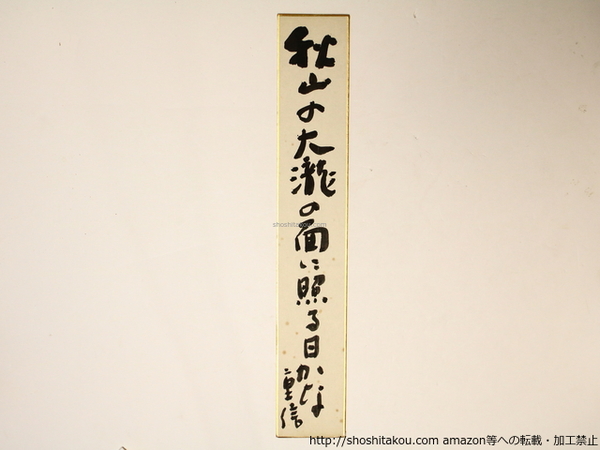 秋山の大瀧の面に照る日かな
重信
shoshitakou.com
http://shoshitakou.com amazon等への転載・加工禁止